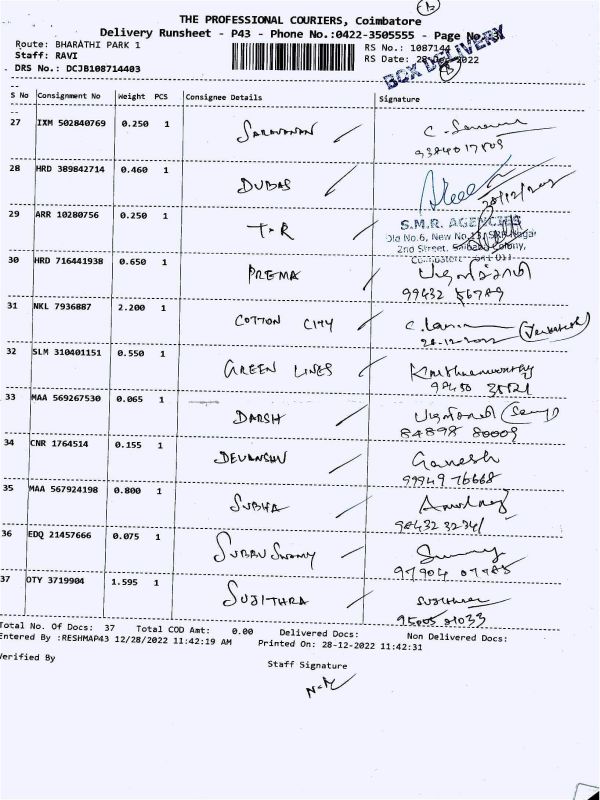 THE PROFESSIONAL COURIERS, Coimbatore
Delivery Runsheet - P43 - Phone No.:0422-3505555 - Page No.
Route: BHARATHI PARK 1
RS No.: 1087144
Staff: RAVI
RS Date: 28-Dec-2022
DRS No.: DCJB108714403
BOX DELIVERY
S No Consignment No Weight PCS Consignee Details Signature
27 IXM 502840769 0.250 1 SARAVANAN
28 HRD 389842714 0.460 1 DUBAS 28/12/2022
29 ARR 10280756 0.250 1 T-R
S.M.R. AGENCIES
Old No.6, New No.13, SRP Nagar
2nd Street, Saibaba Colony,
Coimbatore - 641 011
30 HRD 716441938 0.650 1 PREMA
99432 56789
31 NKL 7936887 2.200 1 COTTON CITY
28-12-2022
32 SLM 310401151 0.550 1 GREEN LINES
33 MAA 569267530 0.065 1 DARSH
84898 80009
34 CNR 1764514 0.155 1 DEVANSHU Ganesh
99949 76668
35 MAA 567924198 0.800 1 SUBHA
36 EDQ 21457666 0.075 1
97904 07785
37 OTY 3719904 1.595 1 SUJITHRA
Total No. Of Docs: 37 Total COD Amt: 0.00 Delivered Docs: Non Delivered Docs:
Entered By :RESHMAP43 12/28/2022 11:42:19 AM Printed On: 28-12-2022 11:42:31
Verified By
Staff Signature